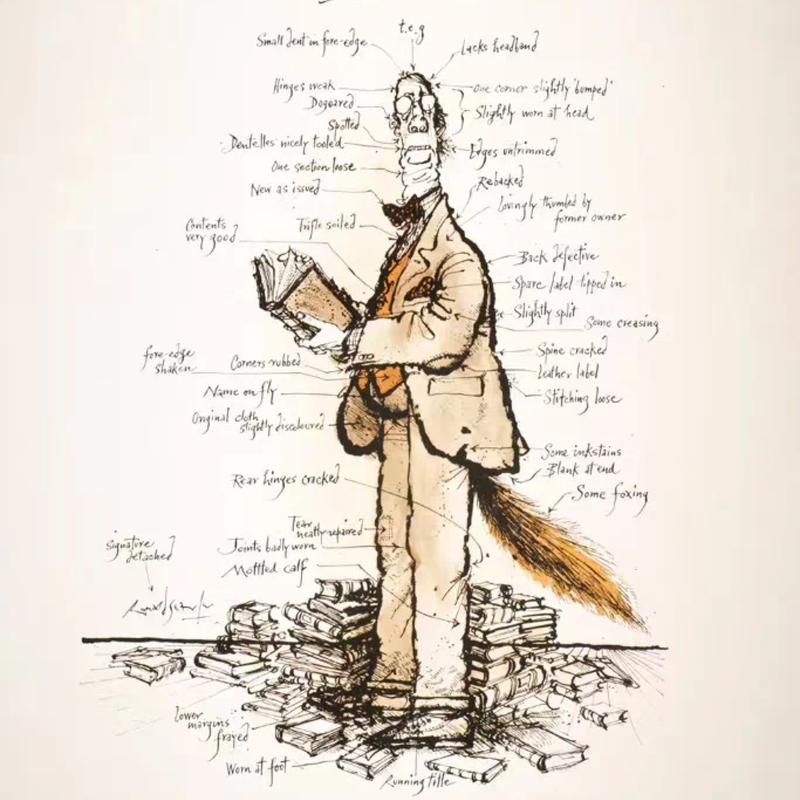 t.e.g
Small dent in fore-edge
Lacks headband
Hinges weak
One corner slightly 'bumped'
Dogeared
Slightly worn at head
Spotted
Dentelles nicely tooled
Edges untrimmed
One section loose
Rebacked
New as issued
Lovingly thumbed by
former owner
Contents
very good
Trifle soiled
Back defective
Spare label tipped in
Slightly split
Some creasing
fore-edge
shaken
Corners rubbed
Spine cracked
Leather label
Name on fly
Stitching loose
Original cloth
slightly discoloured
Some inkstains
Blank at end
Rear hinges cracked
Some foxing
Tear
neatly repaired
signature
detached
Joints badly worn
Mottled calf
Ronald Searle
lower
margins
frayed
Worn at foot
Running title